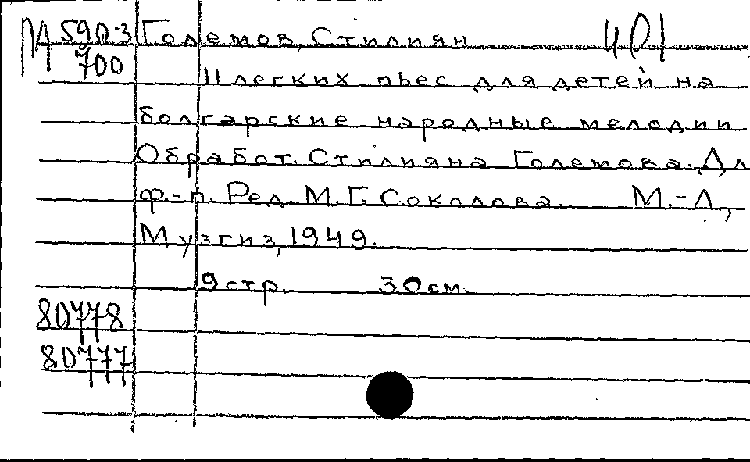 М 590-3 Големов, Стилиян 401
700
11 легких пьес для детей на
болгарские народные мелодии
Обработ. Стилияна Големова. Дл
ф.-п. Ред. М.Г. Соколова. М.-Л.,
Музгиз, 1949.
9 стр. 30 см.
80778
80777